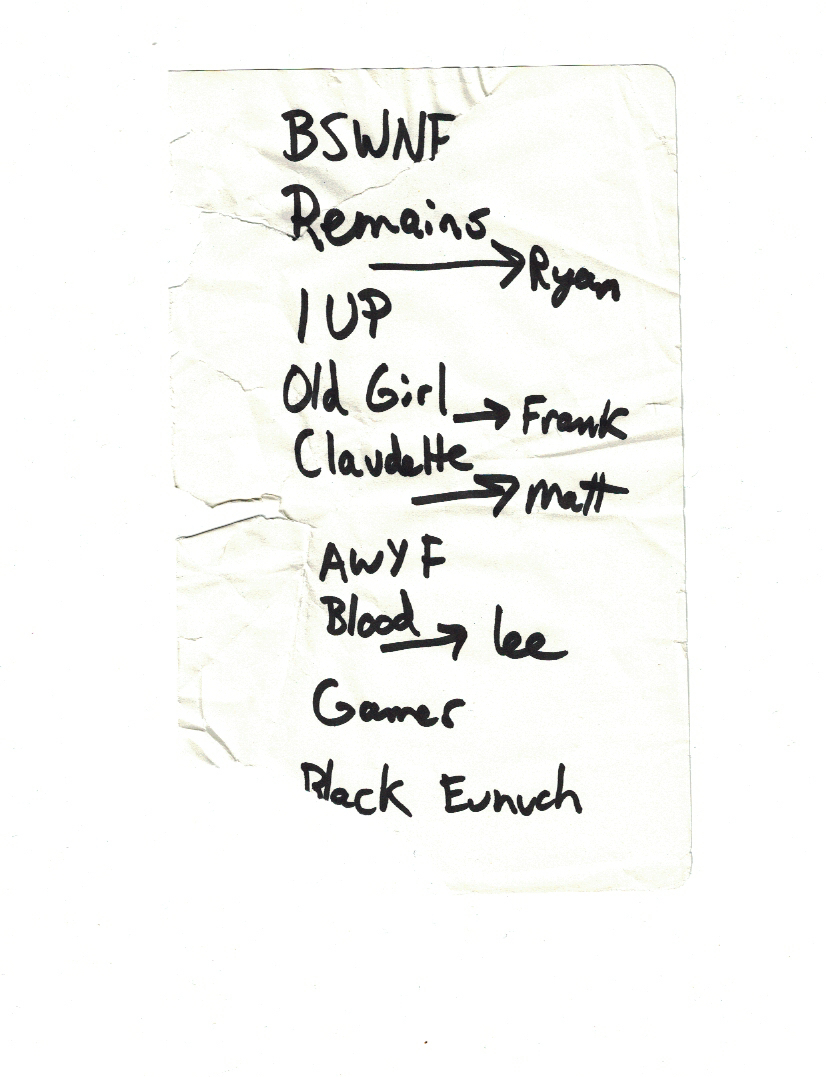 BSWNF
Remains
→ Ryan
1 UP
Old Girl → Frank
Claudette
→ Matt
AWYF
Blood → Lee
Gamer
Black Eunuch